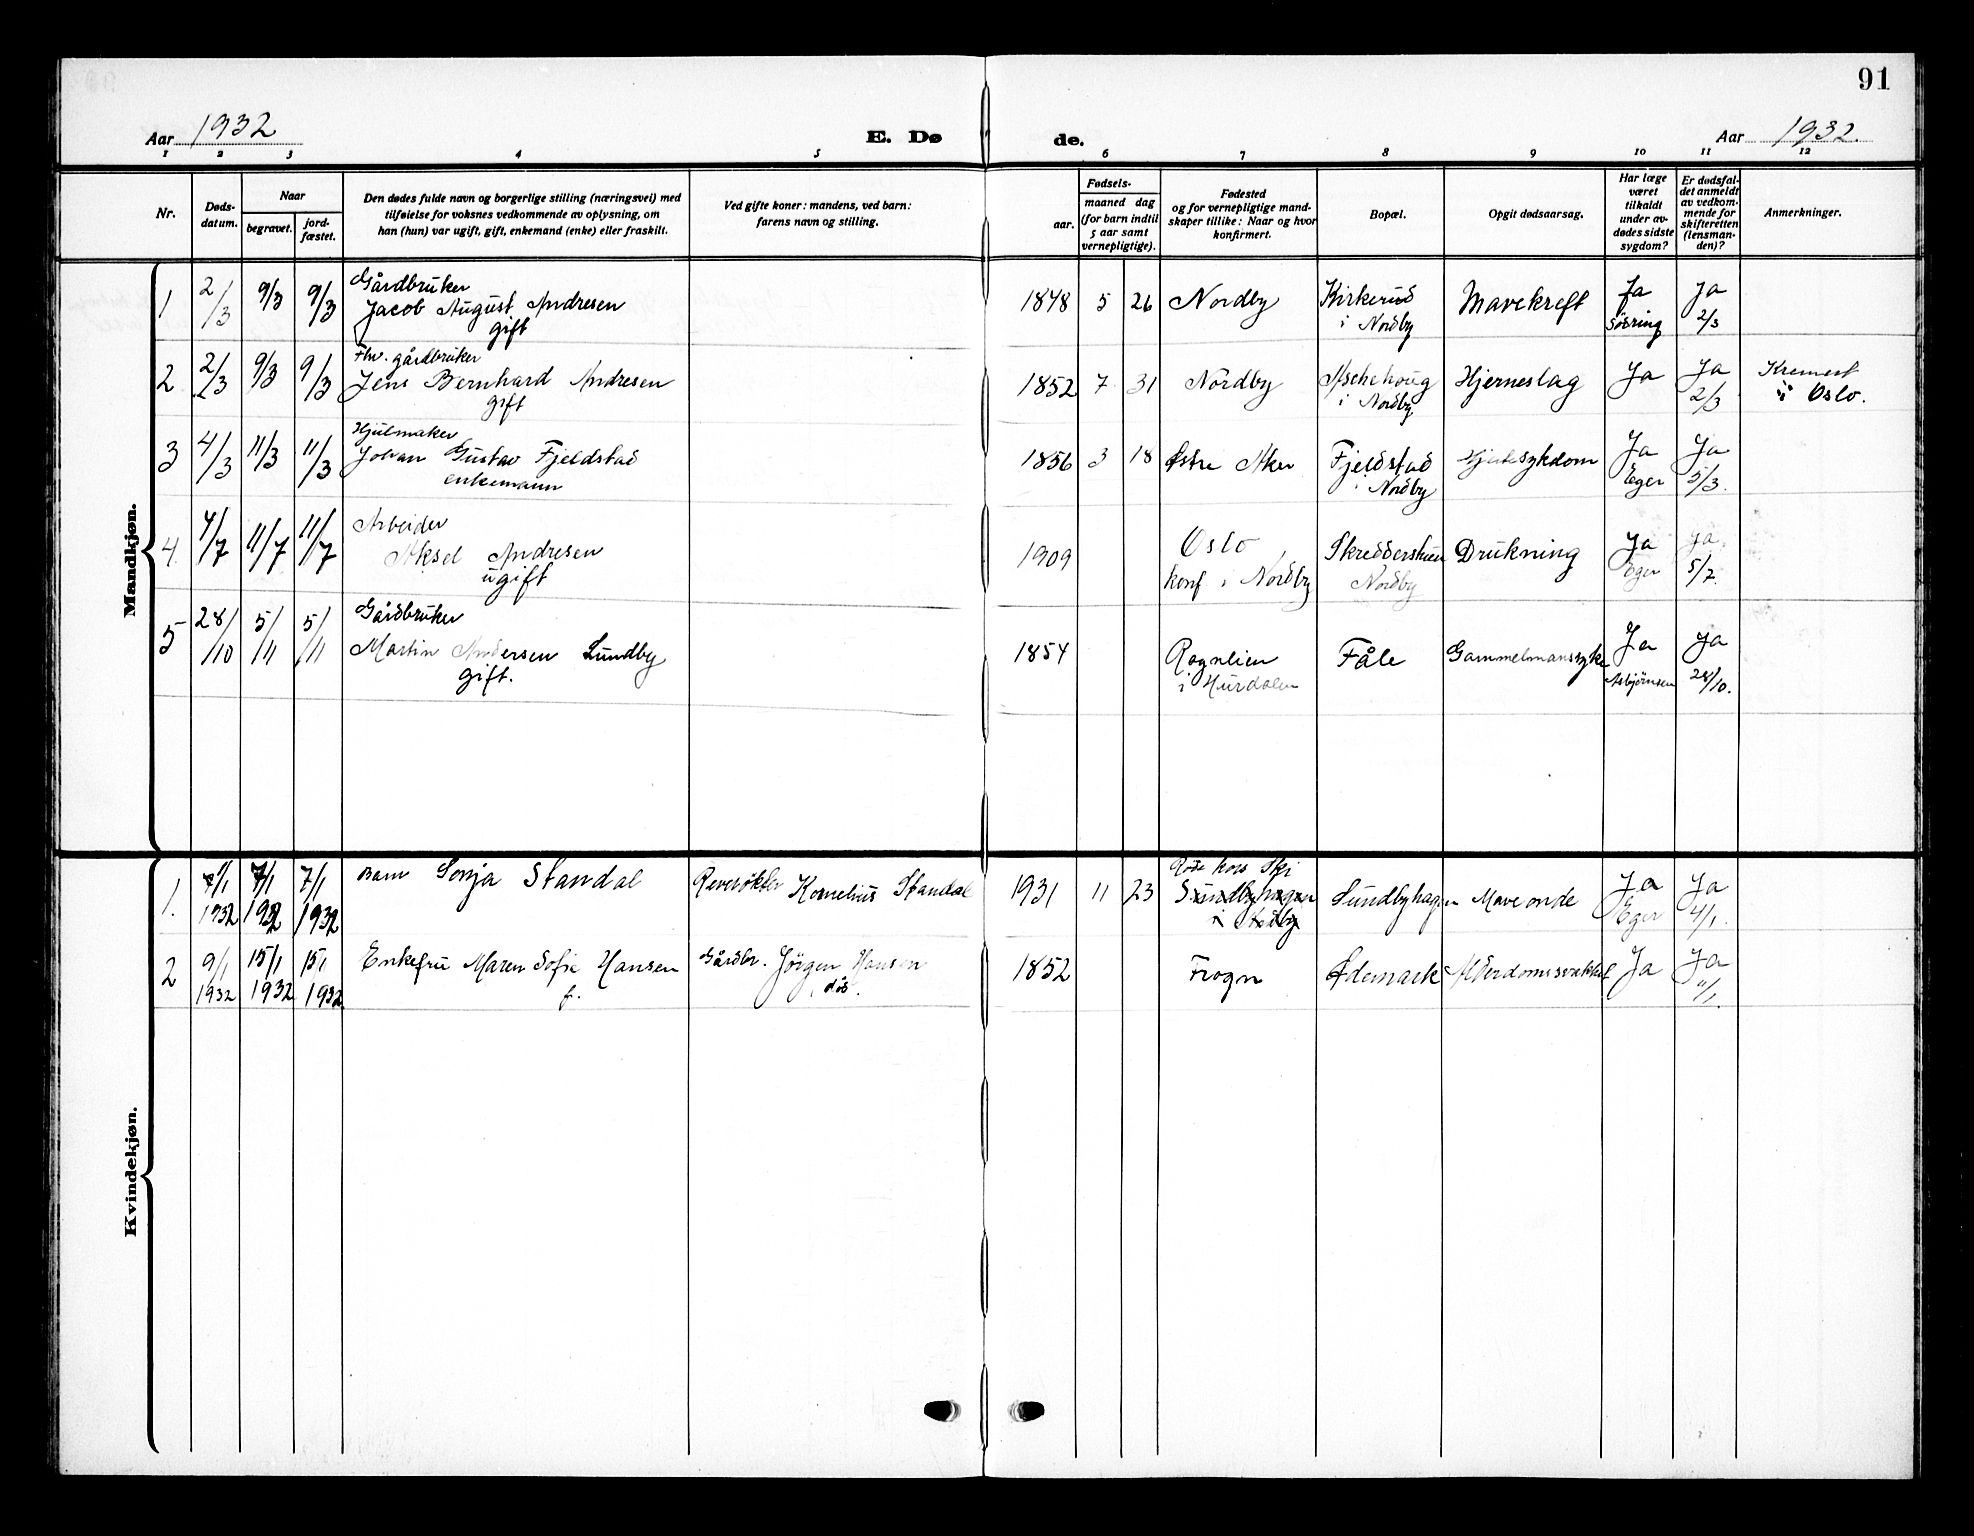 91
Aar 1932
E. Dø
de.
Aar 1932.
1 2 3 4 5 6 7 8 9 10 11 12
Nr.
Døds-
datum.
Naar
begravet.
jord-
fæstet.
Den dødes fulde navn og borgerlige stilling (næringsvei) med
tilføielse for voksnes vedkommende av oplysning, om
han (hun) var ugift, gift, enkemand (enke) eller fraskilt.
Ved gifte koner: mandens, ved barn:
farens navn og stilling.
aar.
Fødsels-
maaned dag
(for barn indtil
5 aar samt
vernepligtige).
Fødested
og for vernepligtige mand-
skaper tillike: Naar og hvor
konfirmert.
Bopæl.
Opgit dødsaarsag.
Har læge
været
tilkaldt
under av-
dødes sidste
sygdom?
Er dødsfal-
det anmeldt
av vedkom-
mende for
skifteretten
(lensman-
den)?
Anmerkninger.
Mandkjøn.
1 2/3 9/3 9/3 Gårdbruker
Jacob August Andresen
gift
1848 5 26 Nordby Kirkerud
i Nordby
Mavekreft Ja
Søsring
Ja
2/3
2 2/3 9/3 9/3 Fhv. gårdbruker
Jens Bernhard Andresen
gift
1852 7 31 Nordby Aschehoug
i Nordby
Hjerneslag Ja Ja
2/3
Kremert
i Oslo.
3 4/3 11/3 11/3 Hjulmaker
Johan Gustav Fjeldstad
enkemann
1856 3 18 Østre Aker Fjeldstad
i Nordby
Hjertesykdom Ja
Eger
Ja
5/3.
4 4/7 11/7 11/7 Arbeider
Aksel Andresen
ugift
1909 Oslo
konf i Nordby
Skredderstuen
Nordby
Drukning Ja
Eger
Ja
5/7.
5 28/10 5/11 5/11 Gårdbruker
Martin Andersen Lundby
gift.
1854 Rognlien
i Hurdalen
Fåle Gammelmannssyke Ja
Asbjørnsen
Ja
28/10.
Kvindekjøn.
1. 4/1
1932
7/1
1932
7/1
1932
Barn Sonja Standal
Reverøkter Kornelius Standal
1931 11 23 Røde kors Ski
Sundbyhagen
i Nordby
Sundbyhagen Maveonde Ja
Eger
Ja
4/1.
2 9/1
1932
15/1
1932
15/1
1932
Enkefru Maren Sofie Hansen
f.
Gårdbr. Jørgen Hansen
død.
1852 Frogn Ødemark Alderdomssvakhet Ja Ja
11/1.